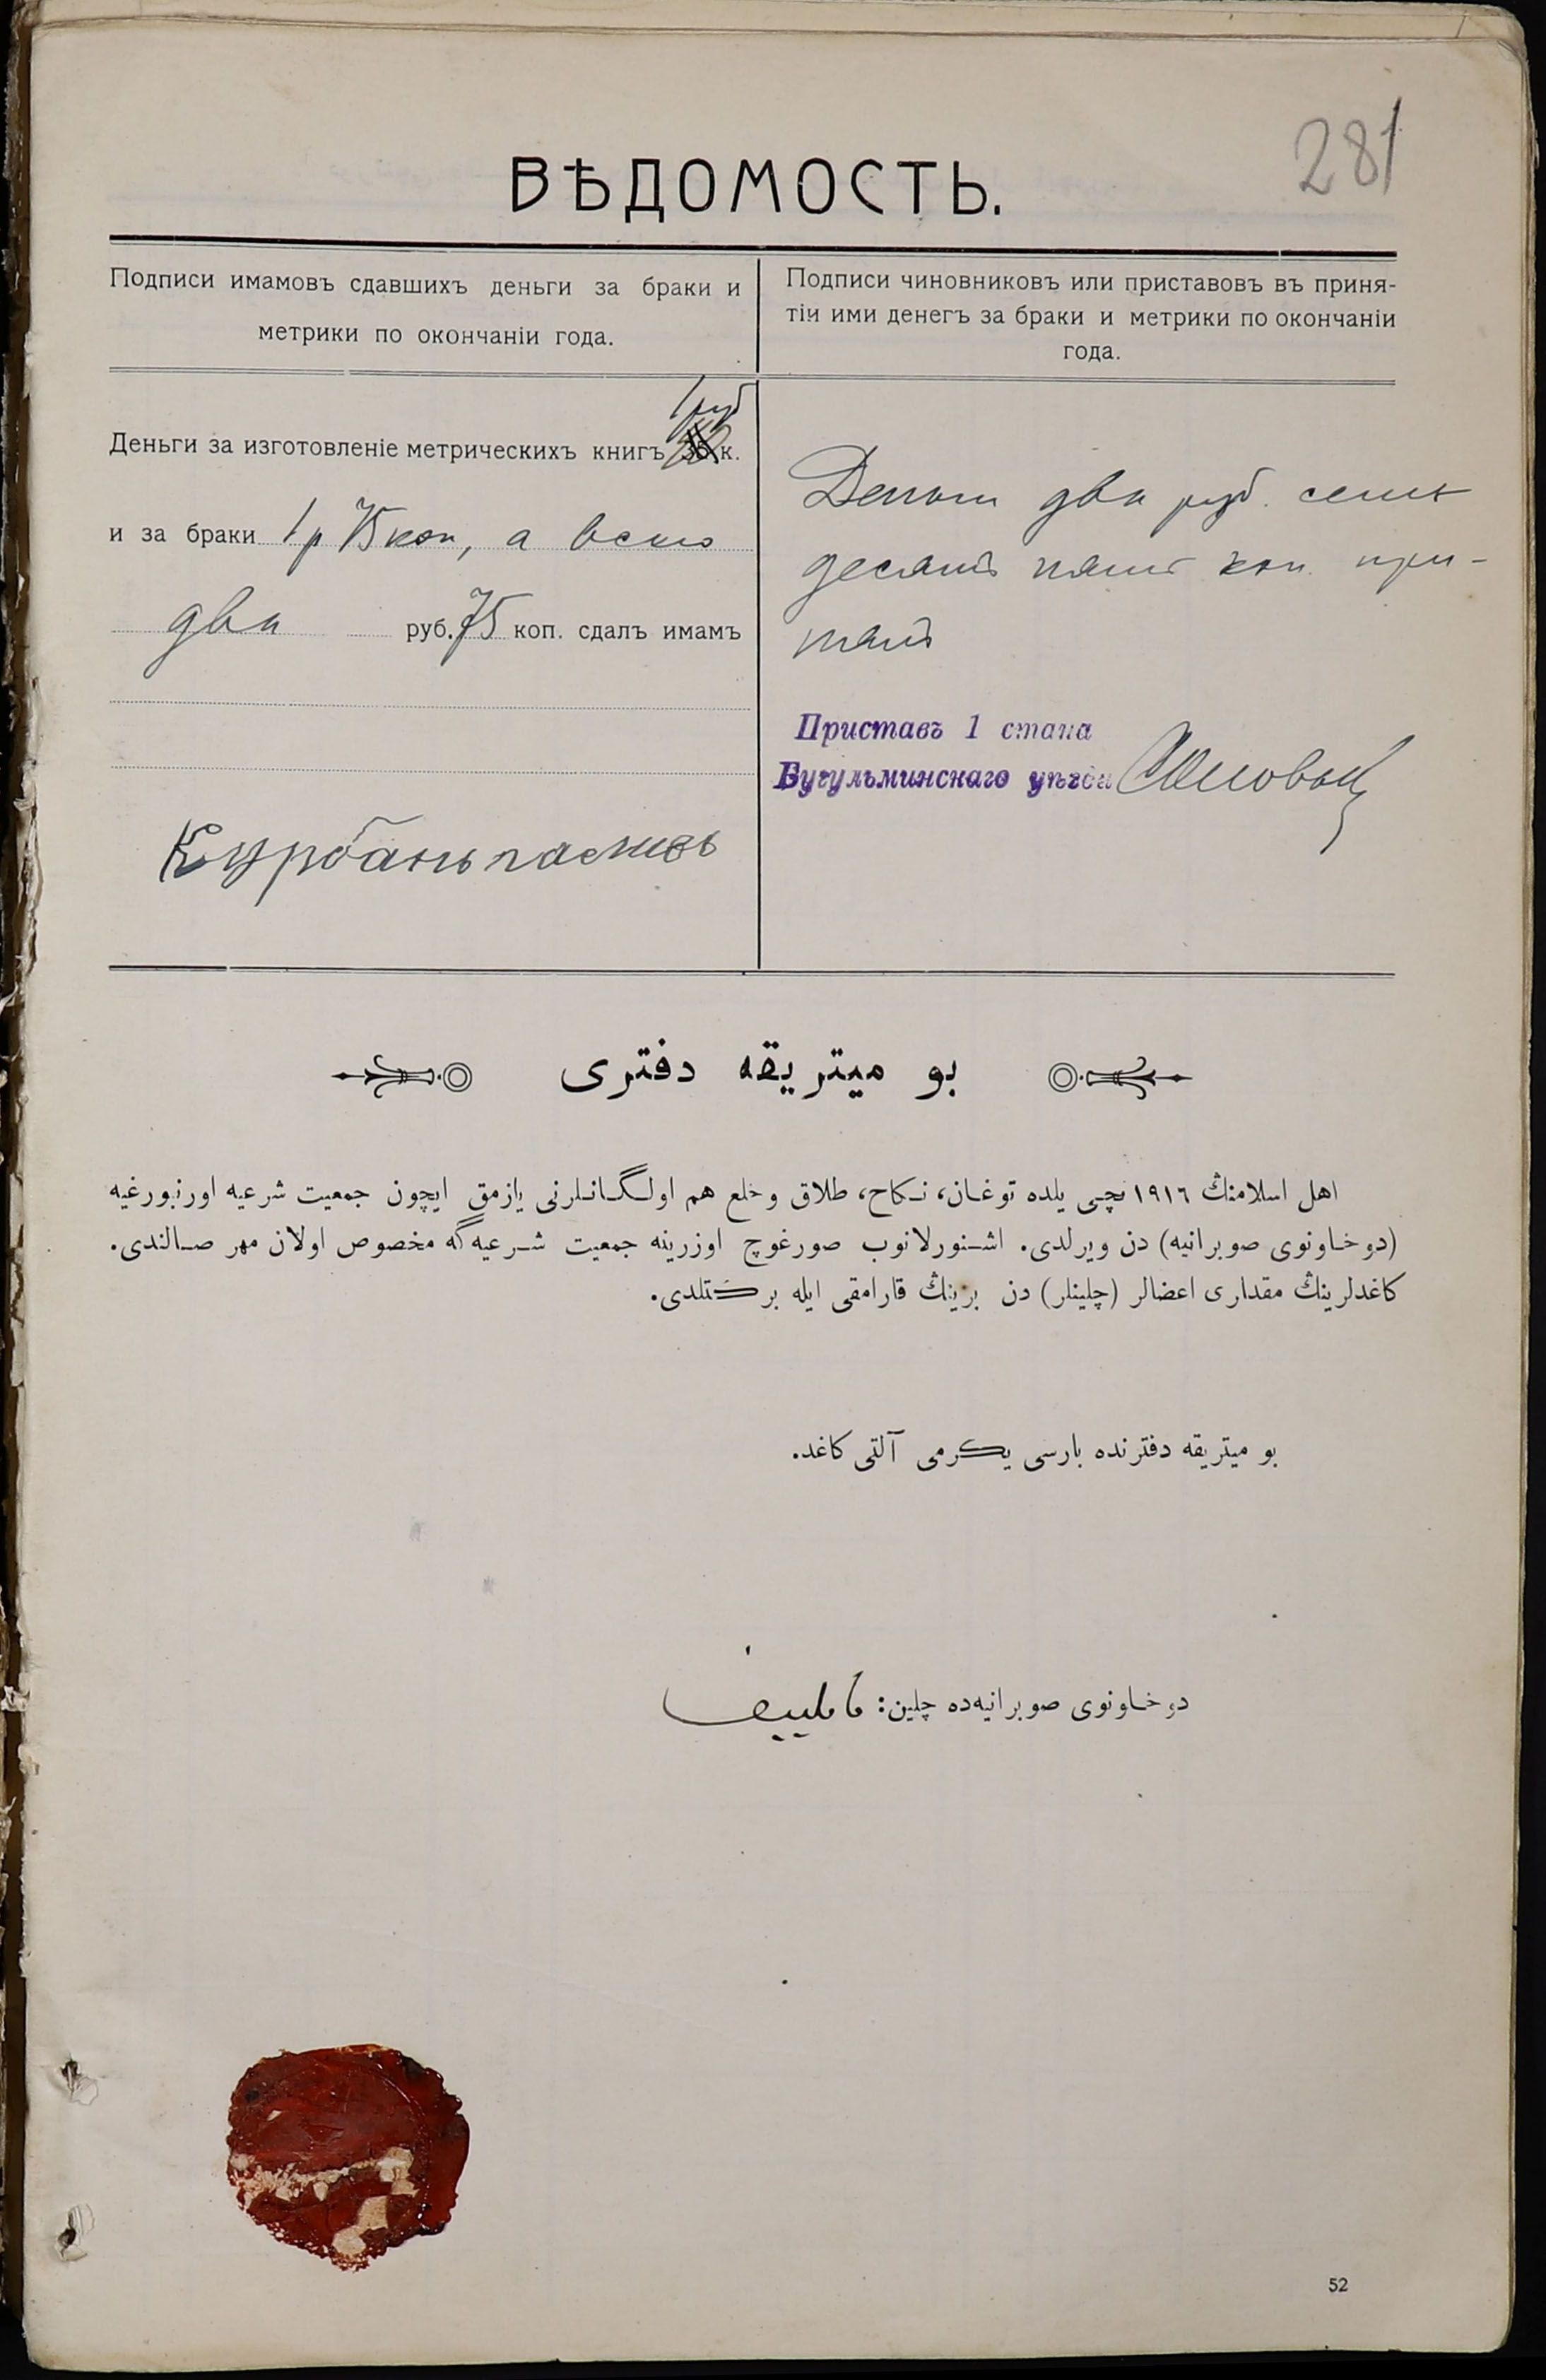 281
ВѢДОМОСТЬ.
Подписи имамовъ сдавшихъ деньги за браки и
метрики по окончаніи года.
Подписи чиновниковъ или приставовъ въ приня-
тіи ими денегъ за браки и метрики по окончаніи
года.
1 руб
Деньги за изготовленіе метрическихъ книгъ к.
и за браки 1 р 75 коп, а всего
два руб. 75 коп. сдалъ имамъ
Курбанъ
Деньги два руб. семь
десятъ пять коп. при-
нялъ
Приставъ 1 стана
Бугульминскаго уѣзда
بو ميتريقه دفترى
اهل اسلامنڭ ١٩١٦ نچى يلده توغان، نكاح، طلاق و خلع هم اولگانلرنى يازمق ايچون جمعيت شرعيه اورنبورغيه
(دوخاونوى صوبرانيه) دن ويرلدى. اشنورلانوب صورغوچ اوزرينه جمعيت شرعيه گه مخصوص اولان مهر صالندى.
كاغدلرينڭ مقدارى اعضالر (چلينلر) دن برينڭ قارامقى ايله بركتلدى.
بو ميتريقه دفترنده بارسى يكرمى آلتى كاغد.
دوخاونوى صوبرانيه‌ده چلين:
52